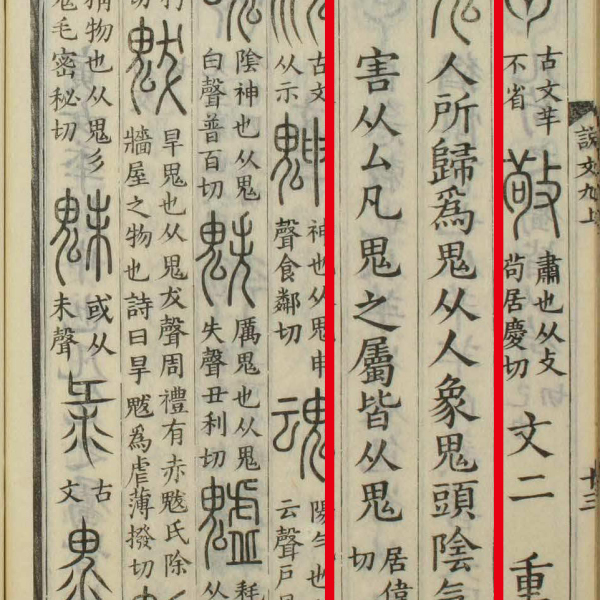 說文九上
十三
古文羊不省
敬 肅也从攴茍居慶切 文二 重
人所歸爲鬼从人象鬼頭陰气
害从厶凡鬼之屬皆从鬼 居偉切
古文从示 䰠 神也从鬼申聲食鄰切 魂 陽气也 云聲戶
陰神也从鬼白聲普百切 䰡 厲鬼也从鬼失聲丑利切 魖 耗 从
切 魃 旱鬼也从鬼犮聲周禮有赤魃氏除牆屋之物也詩曰旱魃爲虐薄撥切
物也从鬼彡鬼毛密秘切 魅 或从未聲 古文